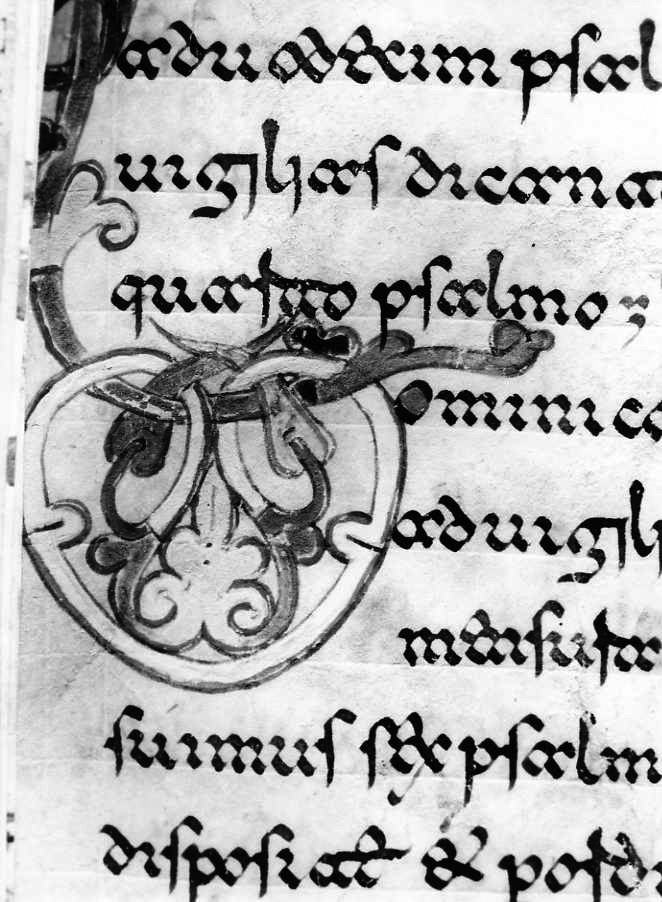 a duodecim psal
uigilias dicant
quarto psalmo;
ominico
ad uigili
mensura
suimus sex psalm
disposite & p ordi